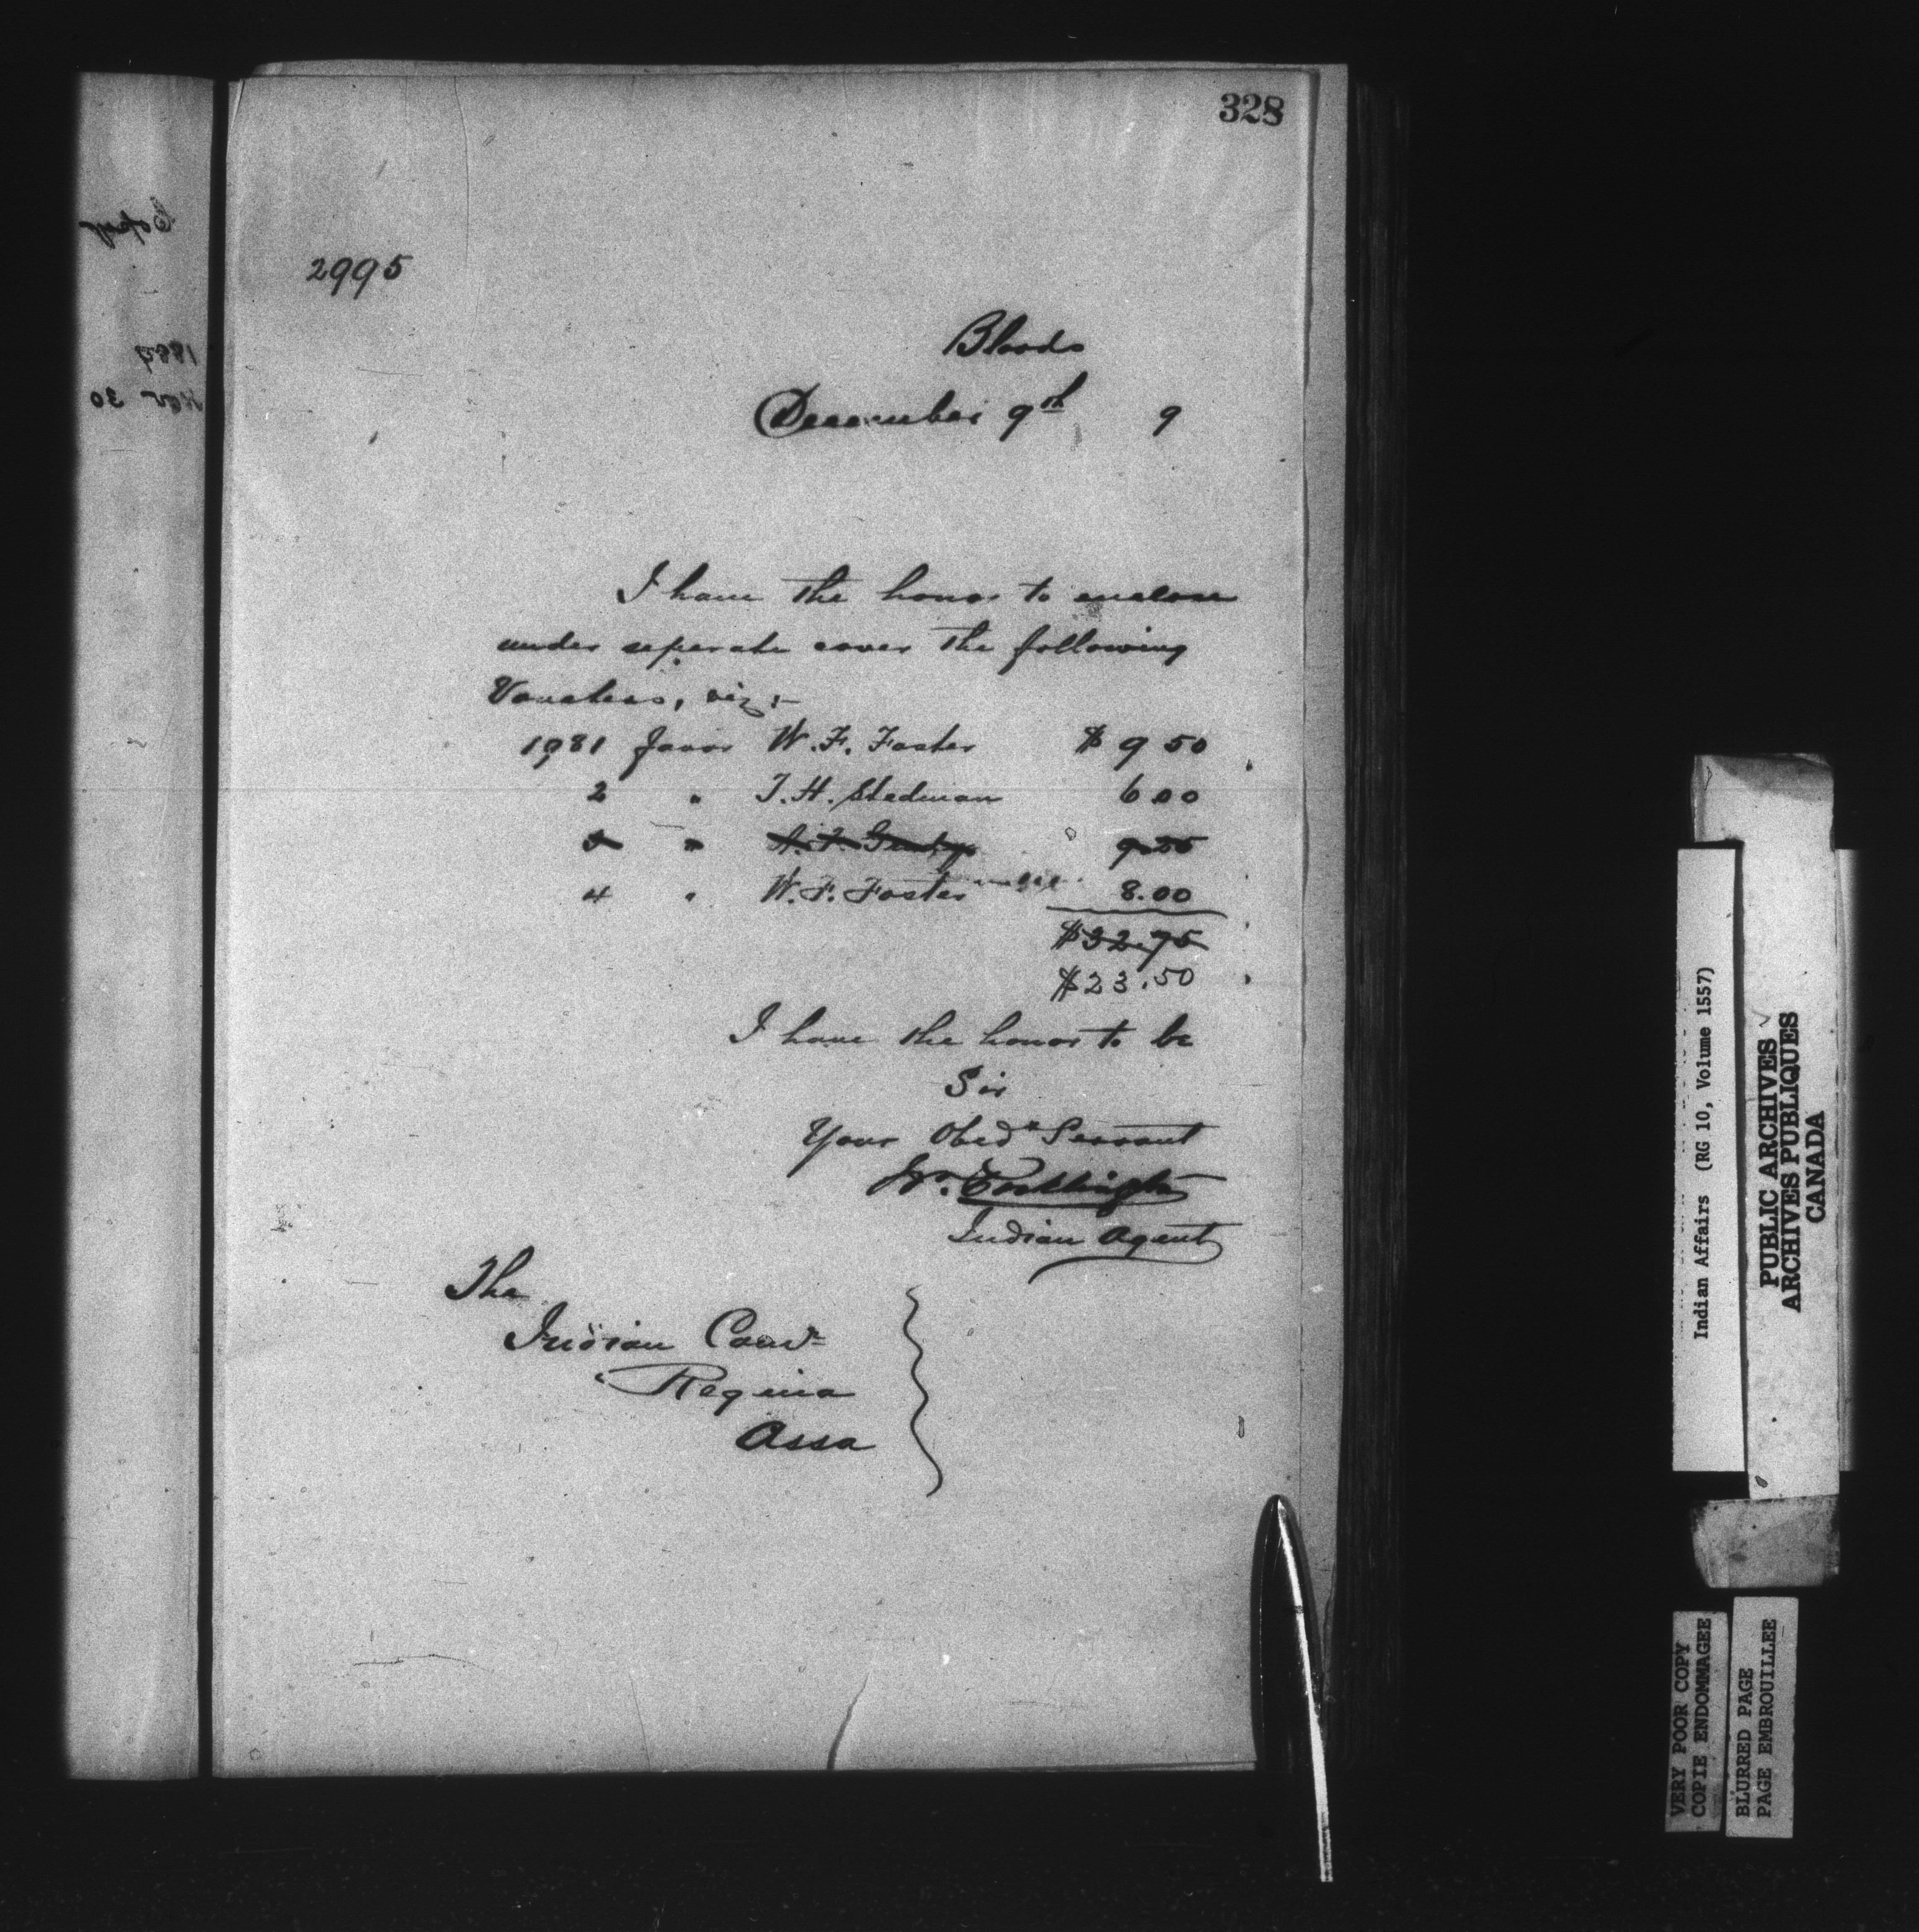 328
2995
Bloods
December 9th 9
I have the honor to enclose
under seperate cover the following
Vouchers, viz;-
1981 favor W. F. Foster $ 9 50
2 " T. H. Stedman 6 00
3 " 9.25
4 " W. F. Foster 8.00
$32.75
$23.50
I have the honor to be
Sir
Your Obedt Servant
Wm. Pocklington
Indian Agent
The
Indian Comr
Regina
Assa
Copy
1882
30
Indian Affairs (RG 10, Volume 1557)
PUBLIC ARCHIVES
ARCHIVES PUBLIQUES
CANADA
VERY POOR COPY
COPIE ENDOMMAGEE
BLURRED PAGE
PAGE EMBROUILLEE